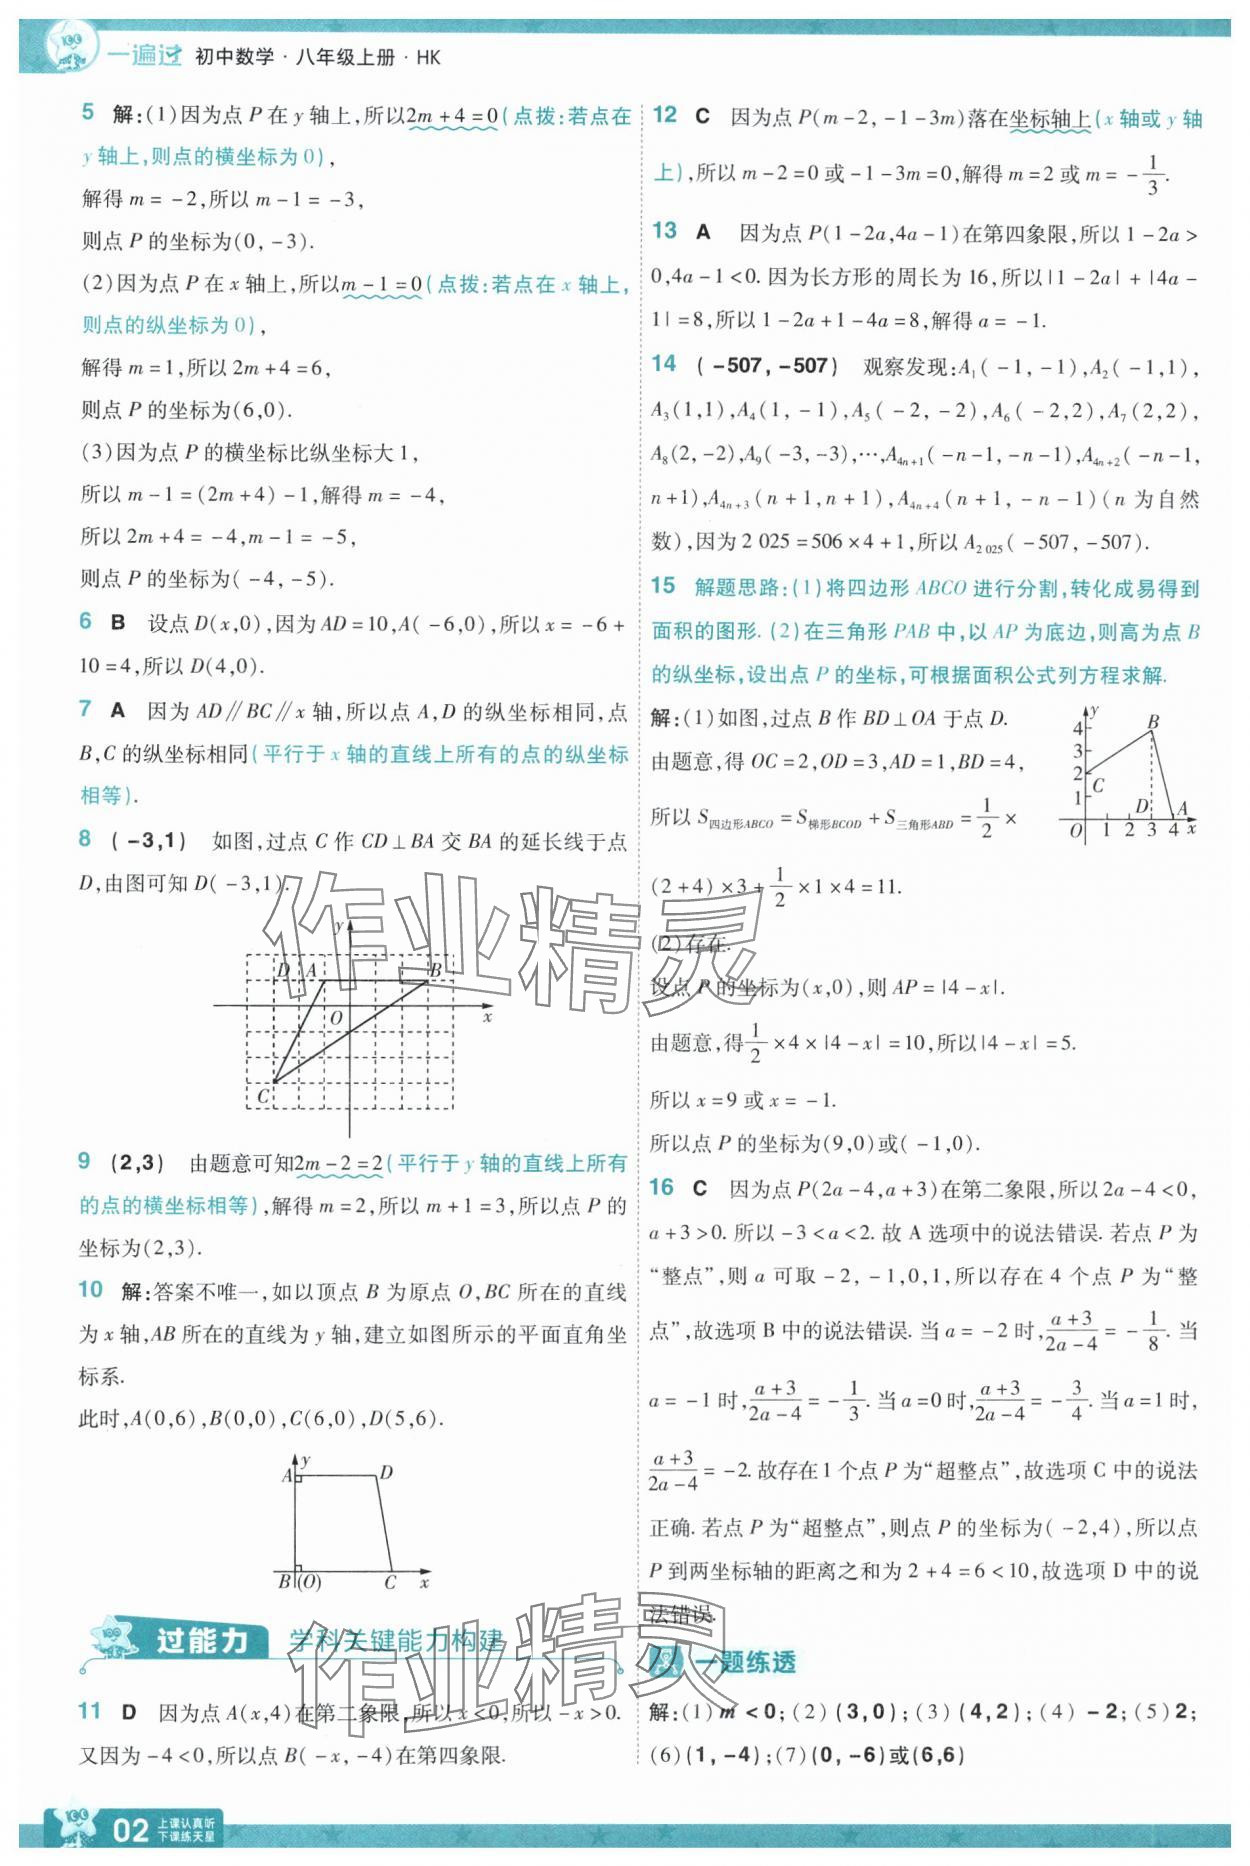 一遍过 初中数学·八年级上册·HK
5 解:(1)因为点 P 在 y 轴上,所以2m+4=0(点拨:若点在
y 轴上,则点的横坐标为 0),
解得 m=-2,所以 m-1=-3,
则点 P 的坐标为(0,-3).
(2)因为点 P 在 x 轴上,所以m-1=0(点拨:若点在 x 轴上,
则点的纵坐标为 0),
解得 m=1,所以 2m+4=6,
则点 P 的坐标为(6,0).
(3)因为点 P 的横坐标比纵坐标大 1,
所以 m-1=(2m+4)-1,解得 m=-4,
所以 2m+4=-4,m-1=-5,
则点 P 的坐标为(-4,-5).
6 B 设点 D(x,0),因为 AD=10,A(-6,0),所以 x=-6+
10=4,所以 D(4,0).
7 A 因为 AD∥BC∥x 轴,所以点 A,D 的纵坐标相同,点
B,C 的纵坐标相同(平行于 x 轴的直线上所有的点的纵坐标
相等).
8 (-3,1) 如图,过点 C 作 CD⊥BA 交 BA 的延长线于点
D,由图可知 D(-3,1).
y
D A B
O x
C
9 (2,3) 由题意可知2m-2=2(平行于 y 轴的直线上所有
的点的横坐标相等),解得 m=2,所以 m+1=3,所以点 P 的
坐标为(2,3).
10 解:答案不唯一,如以顶点 B 为原点 O,BC 所在的直线
为 x 轴,AB 所在的直线为 y 轴,建立如图所示的平面直角坐
标系.
此时,A(0,6),B(0,0),C(6,0),D(5,6).
y
A D
B(O) C x
过能力 学科关键能力构建
11 D 因为点 A(x,4)在第二象限,所以 x<0,所以 -x>0.
又因为 -4<0,所以点 B(-x,-4)在第四象限.
12 C 因为点 P(m-2,-1-3m)落在坐标轴上(x 轴或 y 轴
上),所以 m-2=0 或-1-3m=0,解得 m=2 或 m=-1/3.
13 A 因为点 P(1-2a,4a-1)在第四象限,所以 1-2a>
0,4a-1<0. 因为长方形的周长为 16,所以|1-2a|+|4a-
1|=8,所以 1-2a+1-4a=8,解得 a=-1.
14 (-507,-507) 观察发现:A₁(-1,-1),A₂(-1,1),
A₃(1,1),A₄(1,-1),A₅(-2,-2),A₆(-2,2),A₇(2,2),
A₈(2,-2),A₉(-3,-3),…,A₄ₙ₊₁(-n-1,-n-1),A₄ₙ₊₂(-n-1,
n+1),A₄ₙ₊₃(n+1,n+1),A₄ₙ₊₄(n+1,-n-1)(n 为自然
数),因为 2 025=506×4+1,所以 A₂ ₀₂₅(-507,-507).
15 解题思路:(1)将四边形 ABCO 进行分割,转化成易得到
面积的图形. (2)在三角形 PAB 中,以 AP 为底边,则高为点 B
的纵坐标,设出点 P 的坐标,可根据面积公式列方程求解.
解:(1)如图,过点 B 作 BD⊥OA 于点 D.
由题意,得 OC=2,OD=3,AD=1,BD=4,
所以 S四边形ABCO=S梯形BCOD+S三角形ABD=1/2×
(2+4)×3+1/2×1×4=11.
y
4 B
3
2 C
1 D A
O 1 2 3 4 x
(2)存在.
设点 P 的坐标为(x,0),则 AP=|4-x|.
由题意,得1/2×4×|4-x|=10,所以|4-x|=5.
所以 x=9 或 x=-1.
所以点 P 的坐标为(9,0)或(-1,0).
16 C 因为点 P(2a-4,a+3)在第二象限,所以 2a-4<0,
a+3>0. 所以 -3<a<2. 故 A 选项中的说法错误. 若点 P 为
“整点”,则 a 可取 -2,-1,0,1,所以存在 4 个点 P 为“整
点”,故选项 B 中的说法错误. 当 a=-2 时,(a+3)/(2a-4)=-1/8. 当
a=-1 时,(a+3)/(2a-4)=-1/3. 当 a=0 时,(a+3)/(2a-4)=-3/4. 当 a=1 时,
(a+3)/(2a-4)=-2. 故存在 1 个点 P 为“超整点”,故选项 C 中的说法
正确. 若点 P 为“超整点”,则点 P 的坐标为(-2,4),所以点
P 到两坐标轴的距离之和为 2+4=6<10,故选项 D 中的说
法错误.
一题练透
解:(1)m<0;(2)(3,0);(3)(4,2);(4)-2;(5)2;
(6)(1,-4);(7)(0,-6)或(6,6)
作业精灵
作业精灵
02 上课认真听
下课练天星